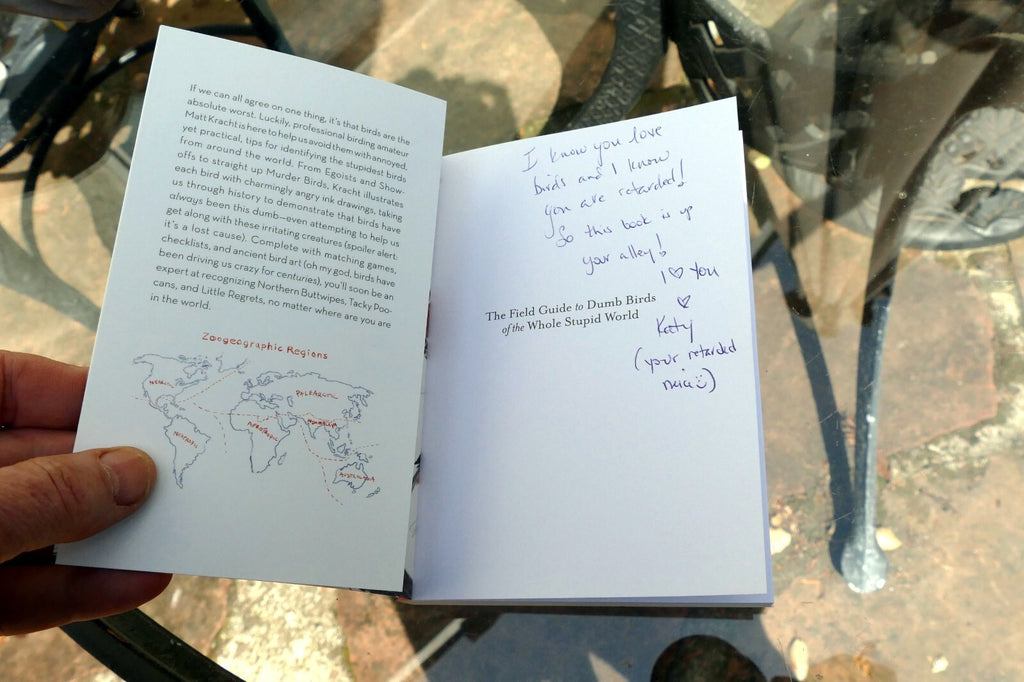 If we can all agree on one thing, it's that birds are the
absolute worst. Luckily, professional birding amateur
Matt Kracht is here to help us avoid them with annoyed,
yet practical, tips for identifying the stupidest birds
from around the world. From Egoists and Show-
offs to straight up Murder Birds, Kracht illustrates
each bird with charmingly angry ink drawings, taking
us through history to demonstrate that birds have
always been this dumb—even attempting to help us
get along with these irritating creatures (spoiler alert:
it's a lost cause). Complete with matching games,
checklists, and ancient bird art (oh my god, birds have
been driving us crazy for centuries), you'll soon be an
expert at recognizing Northern Buttwipes, Tacky Poo-
cans, and Little Regrets, no matter where are you are
in the world.
Zoogeographic Regions
NEARCTIC
PALEARCTIC
AFROTROPIC
INDOMALAYA
NEOTROPIC
AUSTRALASIA
I know you love
birds and I know
you are retarded!
So this book is up
your alley!
I ♡ You
♡
Katy
(your retarded
neice☺)
The Field Guide to Dumb Birds
of the Whole Stupid World